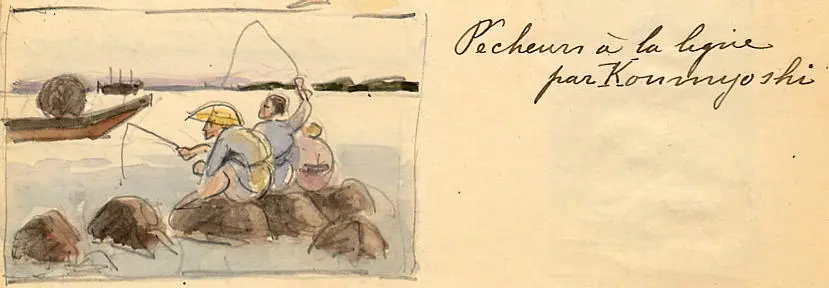 Pêcheurs à la ligne
par Koumyoshi